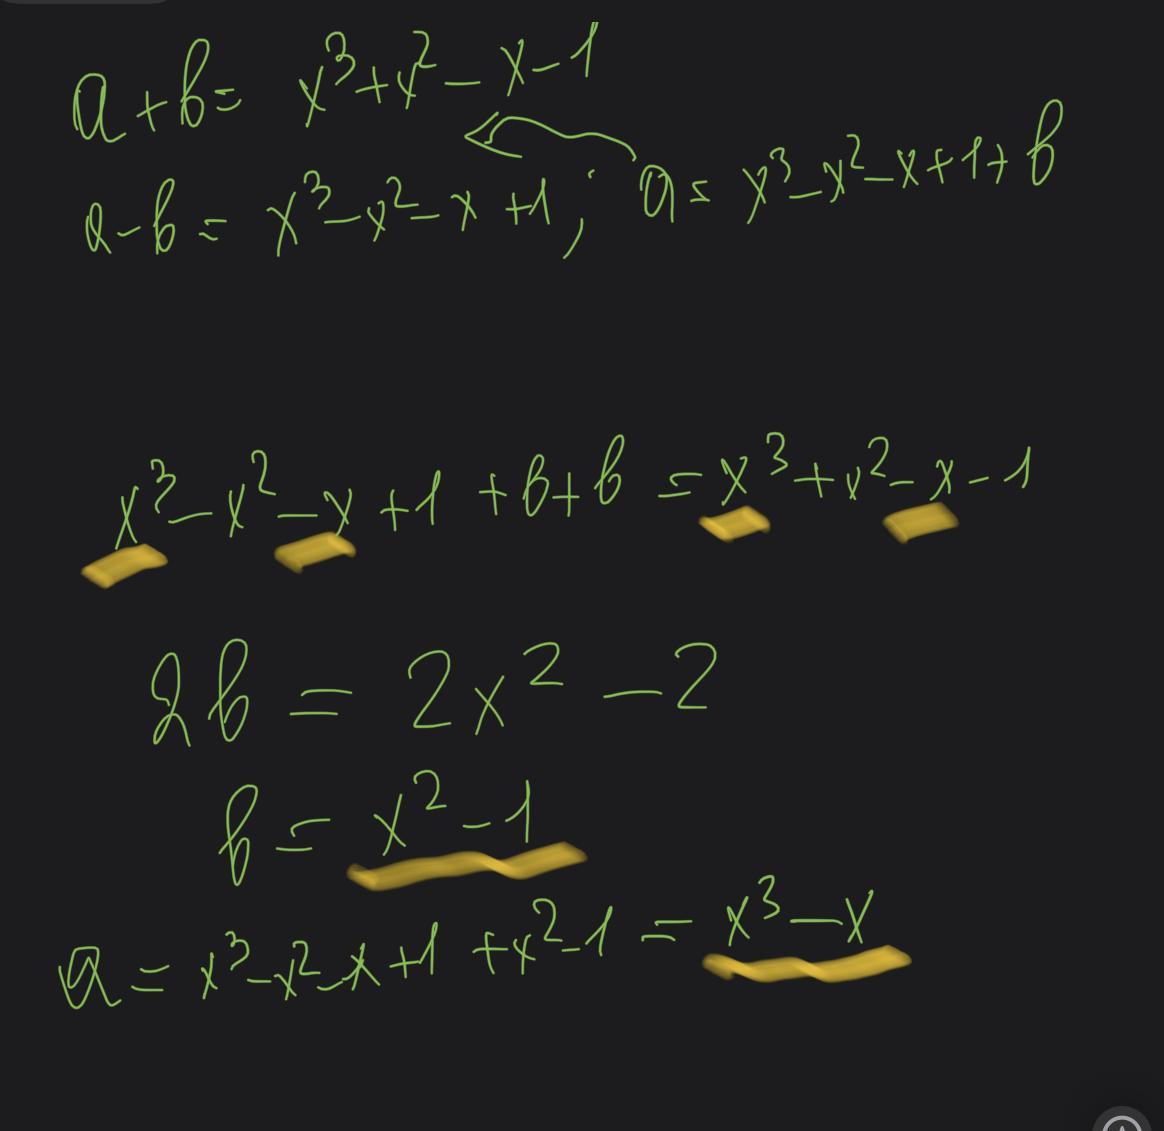 a+b= x³+x²-x-1
a-b= x³-x²-x+1; a= x³-x²-x+1+b
x³-x²-x+1+b+b = x³+x²-x-1
2b = 2x²-2
b= x²-1
a = x³-x²-x+1+x²-1 = x³-x